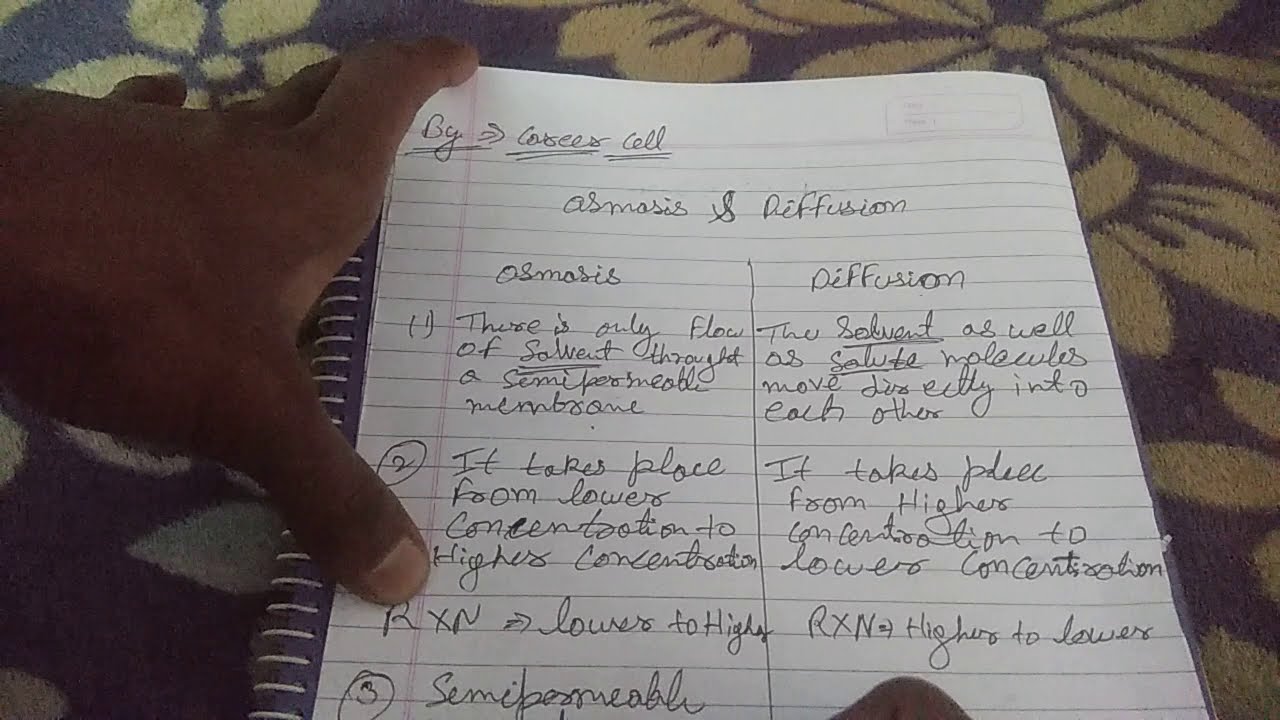 By ⇒ Career Cell
Osmosis & Diffusion
Osmosis
Diffusion
(1) There is only flow
of Solvent throught
a Semipermeable
membrane
The Solvent as well
as Salute molecules
move directly into
each other
(2) It takes place
from lower
Concentration to
Higher Concentration
RXN ⇒ lower to High
It takes place
from Higher
concentration to
lower Concentration
RXN ⇒ Higher to lower
(3) Semipermeable